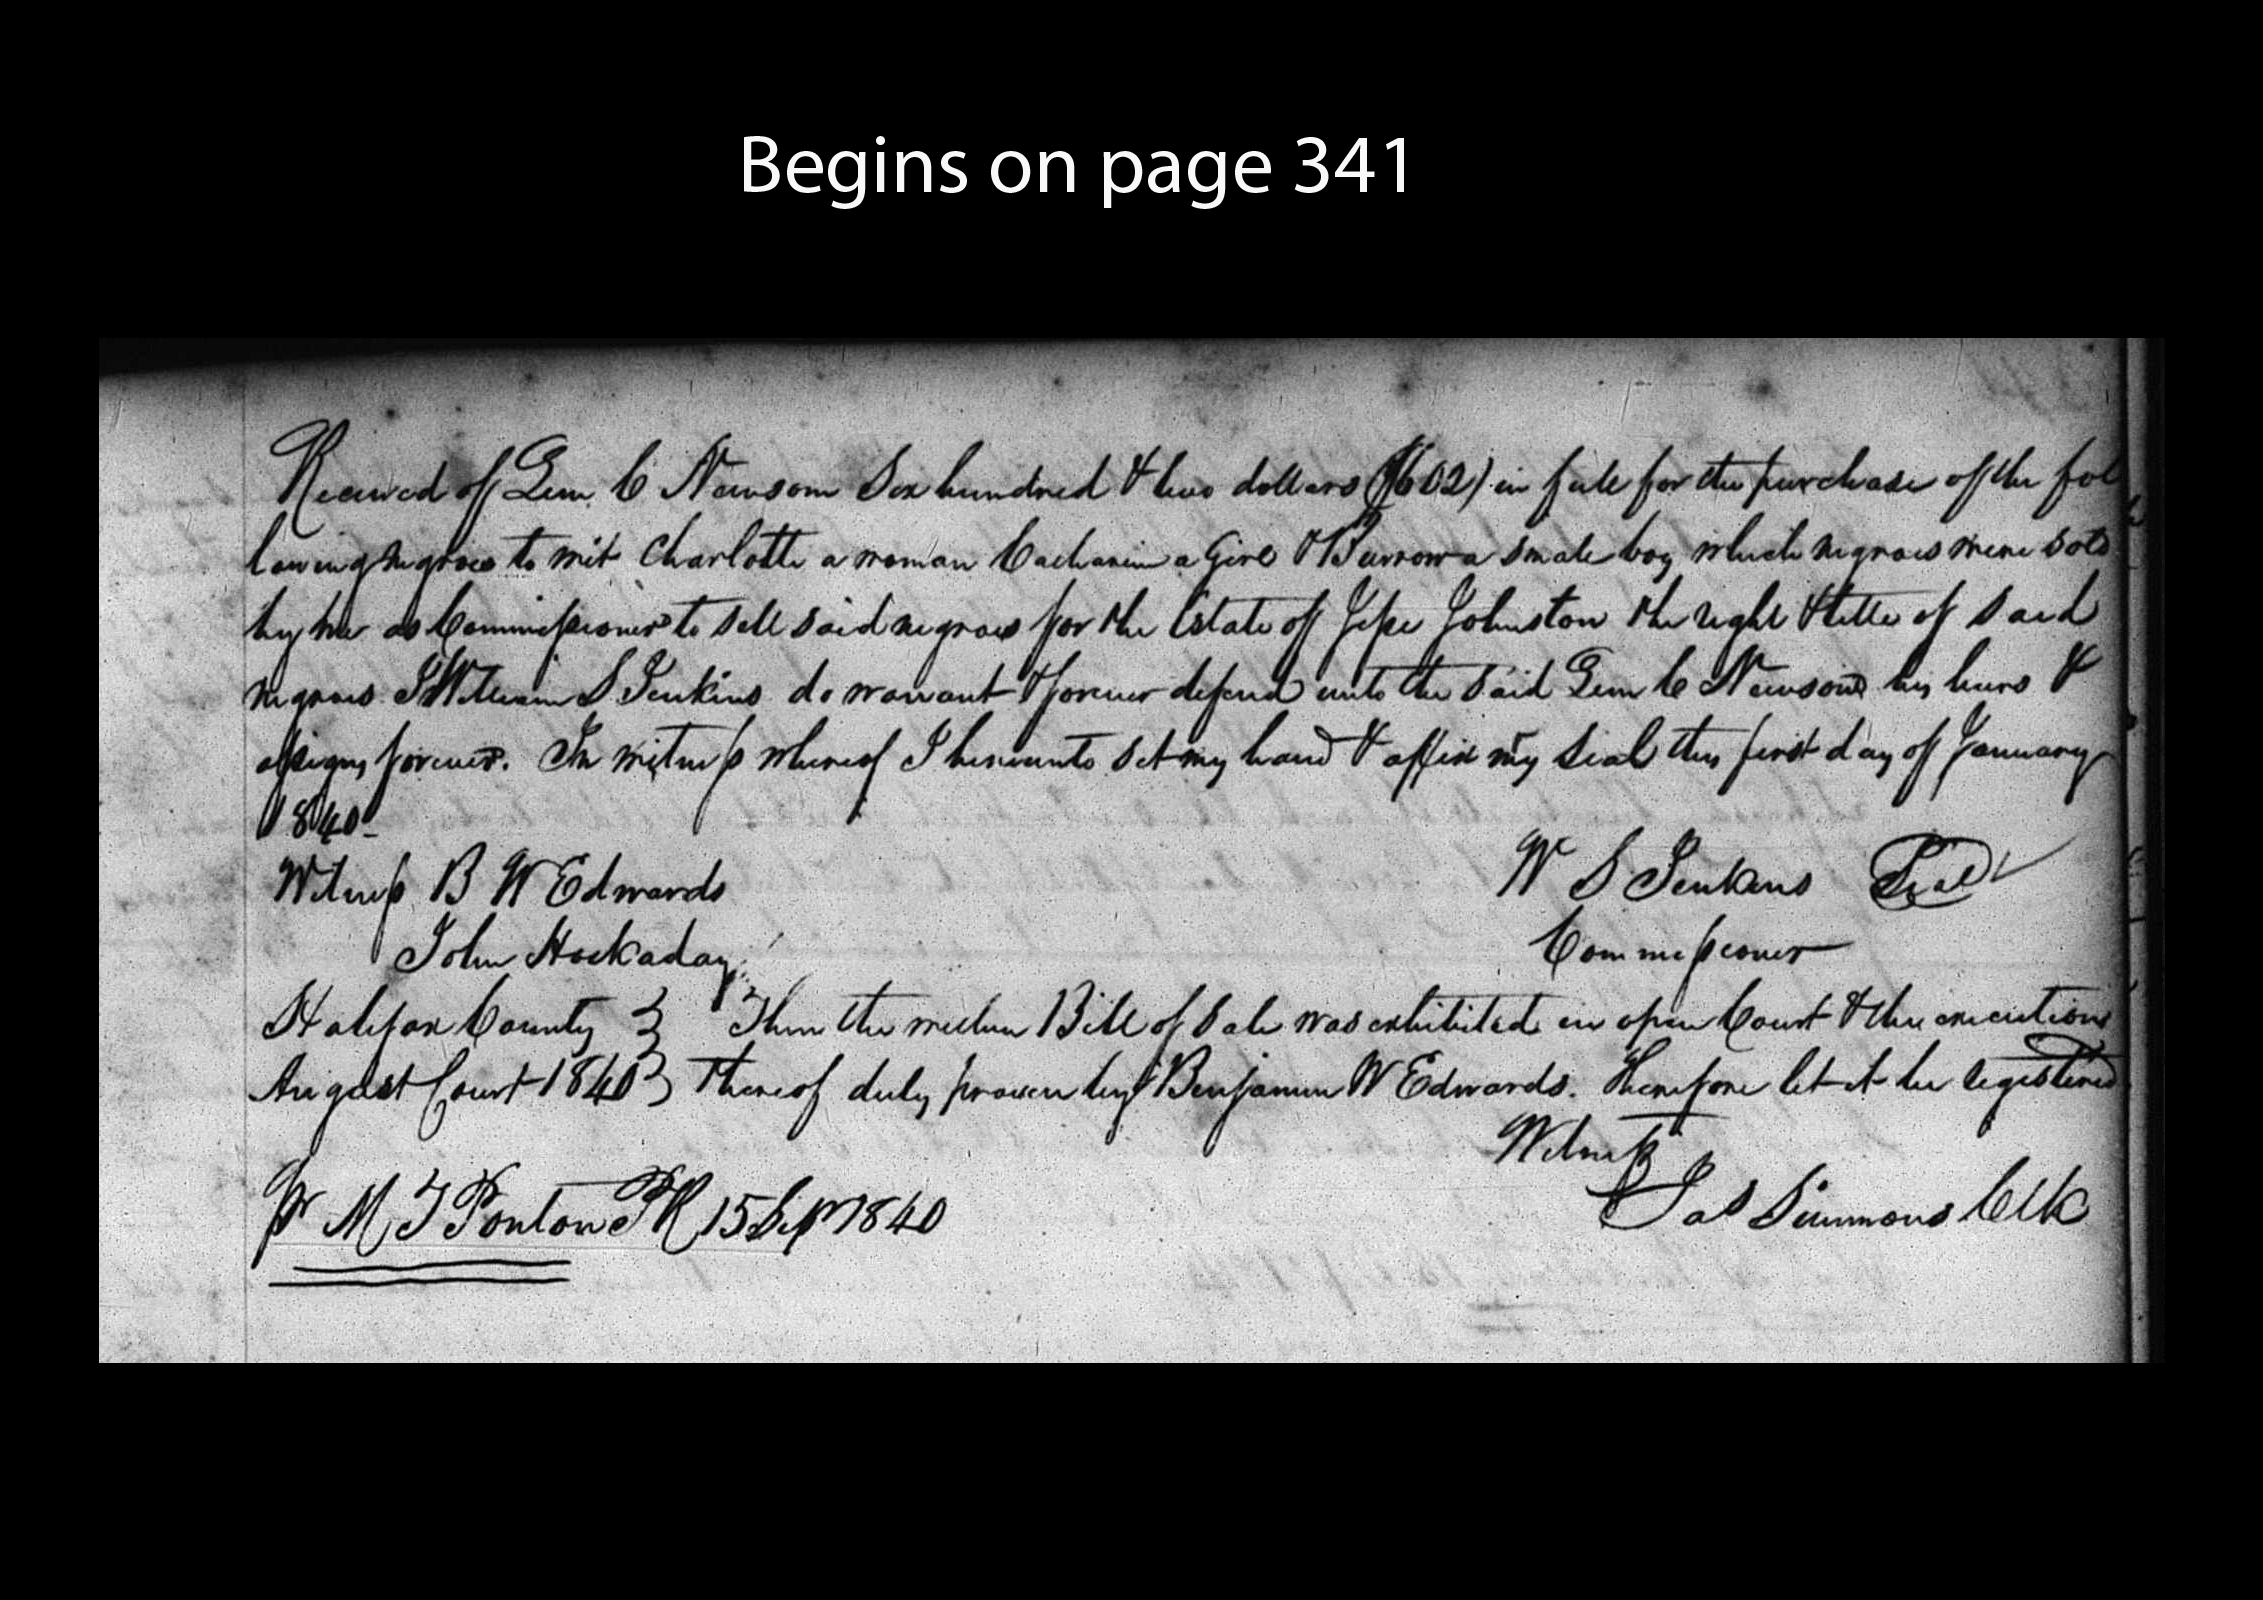 Begins on page 341
Received of Lem. C Newsom Six hundred & two dollars ($602) in full for the purchase of the fol
lowing negroes to wit Charlotte a woman Catharine a Girl & Burrow a small boy which negroes were sold
by me as Commissioner to sell said negroes for the Estate of Jesse Johnston the right & title of said
negroes I William S Jenkins do warrant & forever defend unto the said Lem C Newsom his heirs &
assigns forever. In witness whereof I hereunto set my hand & affix my seal this first day of January
1840-
Witness B W Edwards W S Jenkins Seal
John Hockaday Commissioner
Halifax County } Then the within Bill of Sale was exhibited in open Court & the execution
August Court 1840 } thereof duly proven by Benjamin W Edwards. Therefore let it be registered
Witness
Pr M T Ponton P R 15 Sept 1840 Jas Simmons Clk